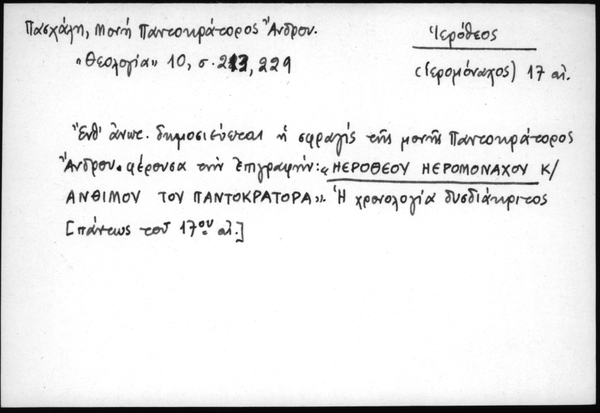 Πασχάλη, Μονή Παντοκράτορος Ἄνδρου.
"Θεολογία" 10, σ. 213, 229
Ἱερόθεος
(Ἱερομόναχος) 17 αἰ.
Ἔνθ' ἀνωτ. δημοσιεύεται ἡ σφραγίς τῆς μονῆς Παντοκράτορος
Ἄνδρου φέρουσα τήν ἐπιγραφήν: «ΗΕΡΟΘΕΟΥ ΗΕΡΟΜΟΝΑΧΟΥ Κ/
ΑΝΘΙΜΟΥ ΤΟΥ ΠΑΝΤΟΚΡΑΤΟΡΑ». Ἡ χρονολογία δυσδιάκριτος
[πάντως τοῦ 17ου αἰ.]